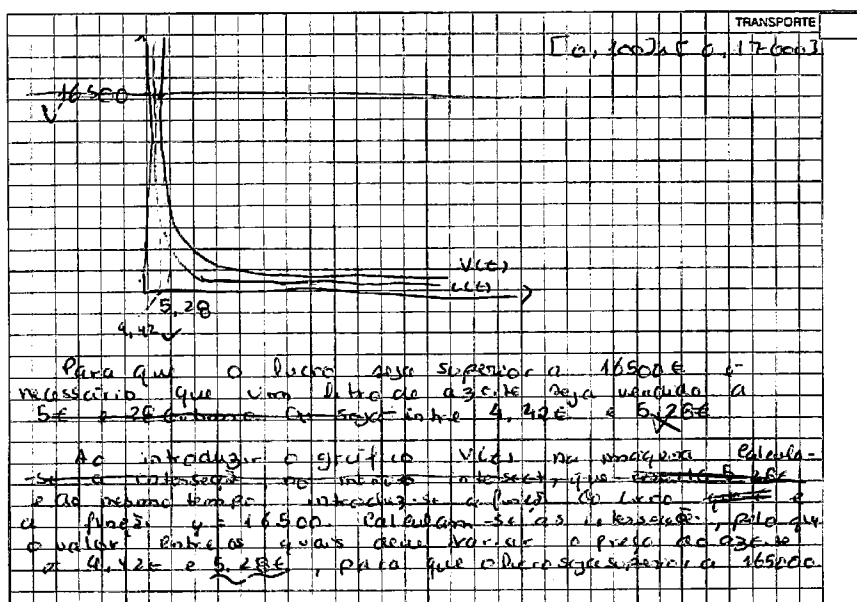 TRANSPORTE
[0, 100] x [0, 17600]
16500
V(t)
L(t)
5,28
4,42
Para que o lucro seja superior a 16500€ é
necessário que um litro de azeite seja vendido a
5€ e 28 Ou seja entre 4,42€ e 5,28€
Ao introduzir o gráfico V(t) na máquina Calcula-
-se a interseção, no intersect, que
e ao mesmo tempo introduz-se a função do lucro e
a função y = 16500. Calculam-se as interseções, pelo que
o valor entre os quais deve variar o preço do azeite
4,42€ e 5,28€, para que o lucro seja superior a 165000